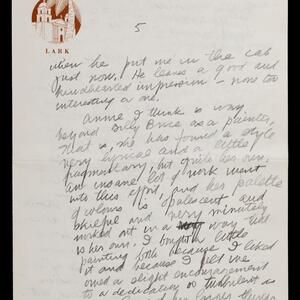 LARK
5
when he put me in the cab
just now. He leaves a good and
kindhearted impression — none too
interesting a one.
Anne I think is way
beyond Billy Brice as a painter,
that is, she has found a style
very lyrical and a little
fragmentary but quite her own.
an insane lot of work went
into this effort, and her palette
of colours is opalescent and
skilful and very minutely
worked out in a way that
is her own. I bought a little
painting both because I liked
it and because I felt we
owed a slight encouragement
to a dedication as turbulent as